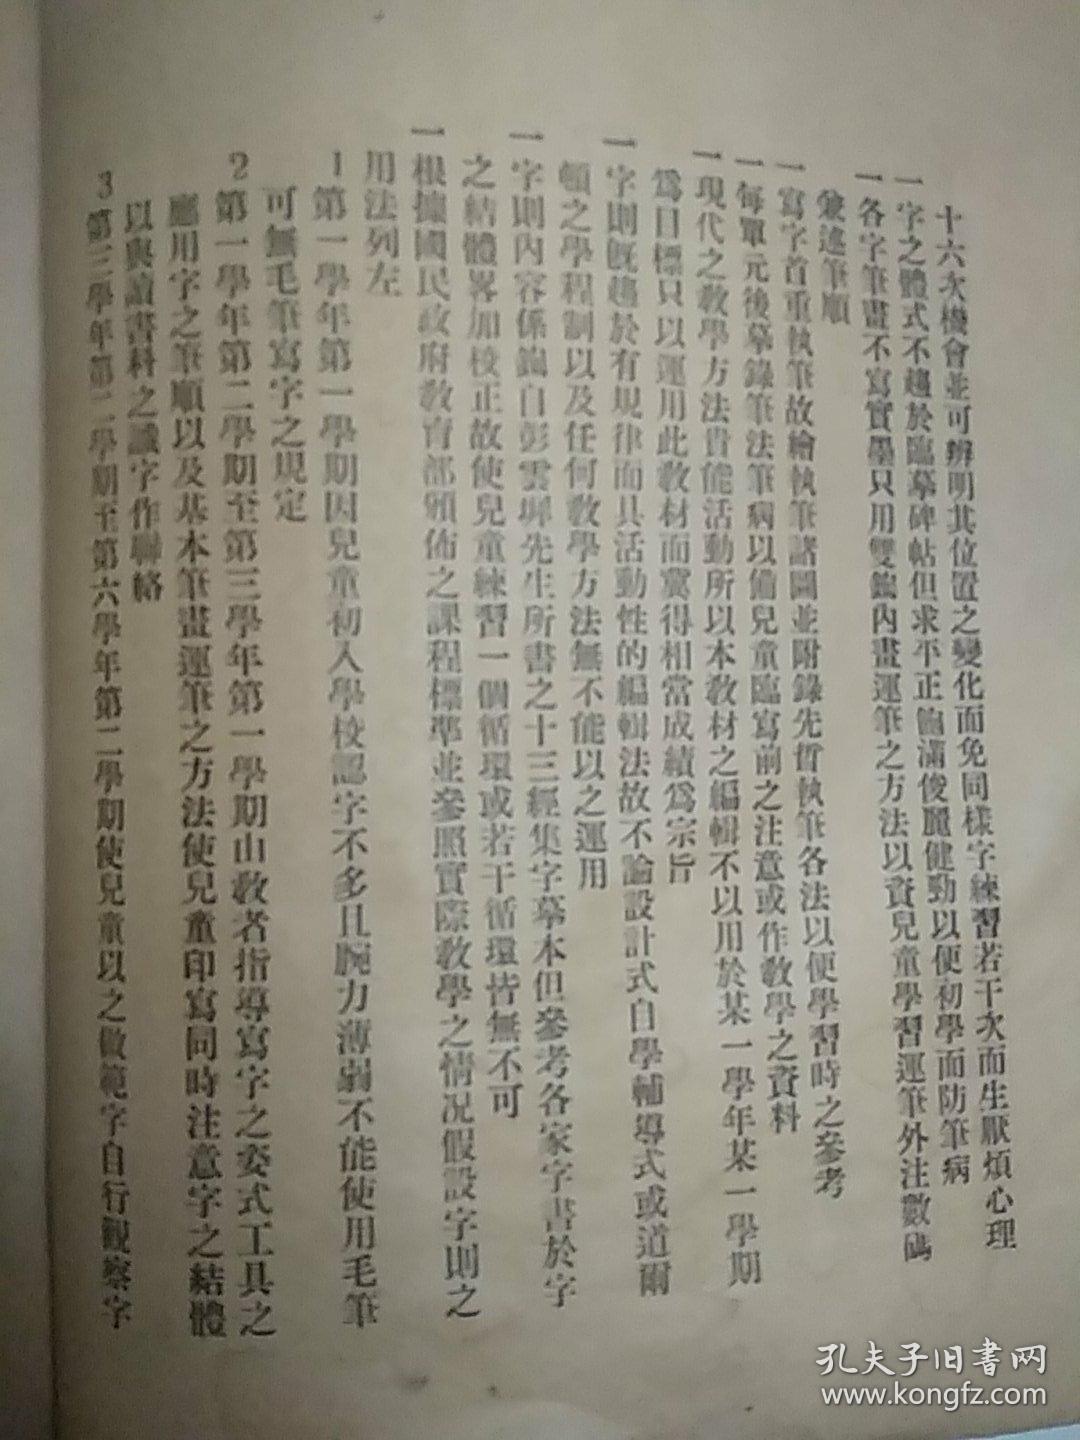 十六次機會並可辨明其位置之變化而免同樣字練習若干次而生厭煩心理
一字之體式不趨於臨摹碑帖但求平正飽滿俊麗健勁以便初學而防筆病
一各字筆畫不寫實墨只用雙鈎內畫運筆之方法以資兒童學習運筆外注數碼
兼述筆順
一寫字首重執筆故繪執筆諸圖並附錄先哲執筆各法以便學習時之參考
一每單元後摹錄筆法筆病以備兒童臨寫前之注意或作教學之資料
一現代之教學方法貴能活動所以本教材之編輯不以用於某一學年某一學期
爲目標只以運用此教材而冀得相當成績爲宗旨
一字則既趨於有規律而具活動性的編輯法故不論設計式自學輔導式或道爾
頓之學程制以及任何教學方法無不能以之運用
一字則內容係鈎自彭雲墀先生所書之十三經集字摹本但參考各家字書於字
之結體畧加校正故使兒童練習一個循環或若干循環皆無不可
一根據國民政府教育部頒佈之課程標準並參照實際教學之情况假設字則之
用法列左
1第一學年第一學期因兒童初入學校認字不多且腕力薄弱不能使用毛筆
可無毛筆寫字之規定
2第一學年第二學期至第三學年第一學期由教者指導寫字之姿式工具之
應用字之筆順以及基本筆畫運筆之方法使兒童印寫同時注意字之結體
以與讀書科之識字作聯絡
3第三學年第二學期至第六學年第二學期使兒童以之做範字自行觀察字
孔夫子旧書网
www.kongfz.com